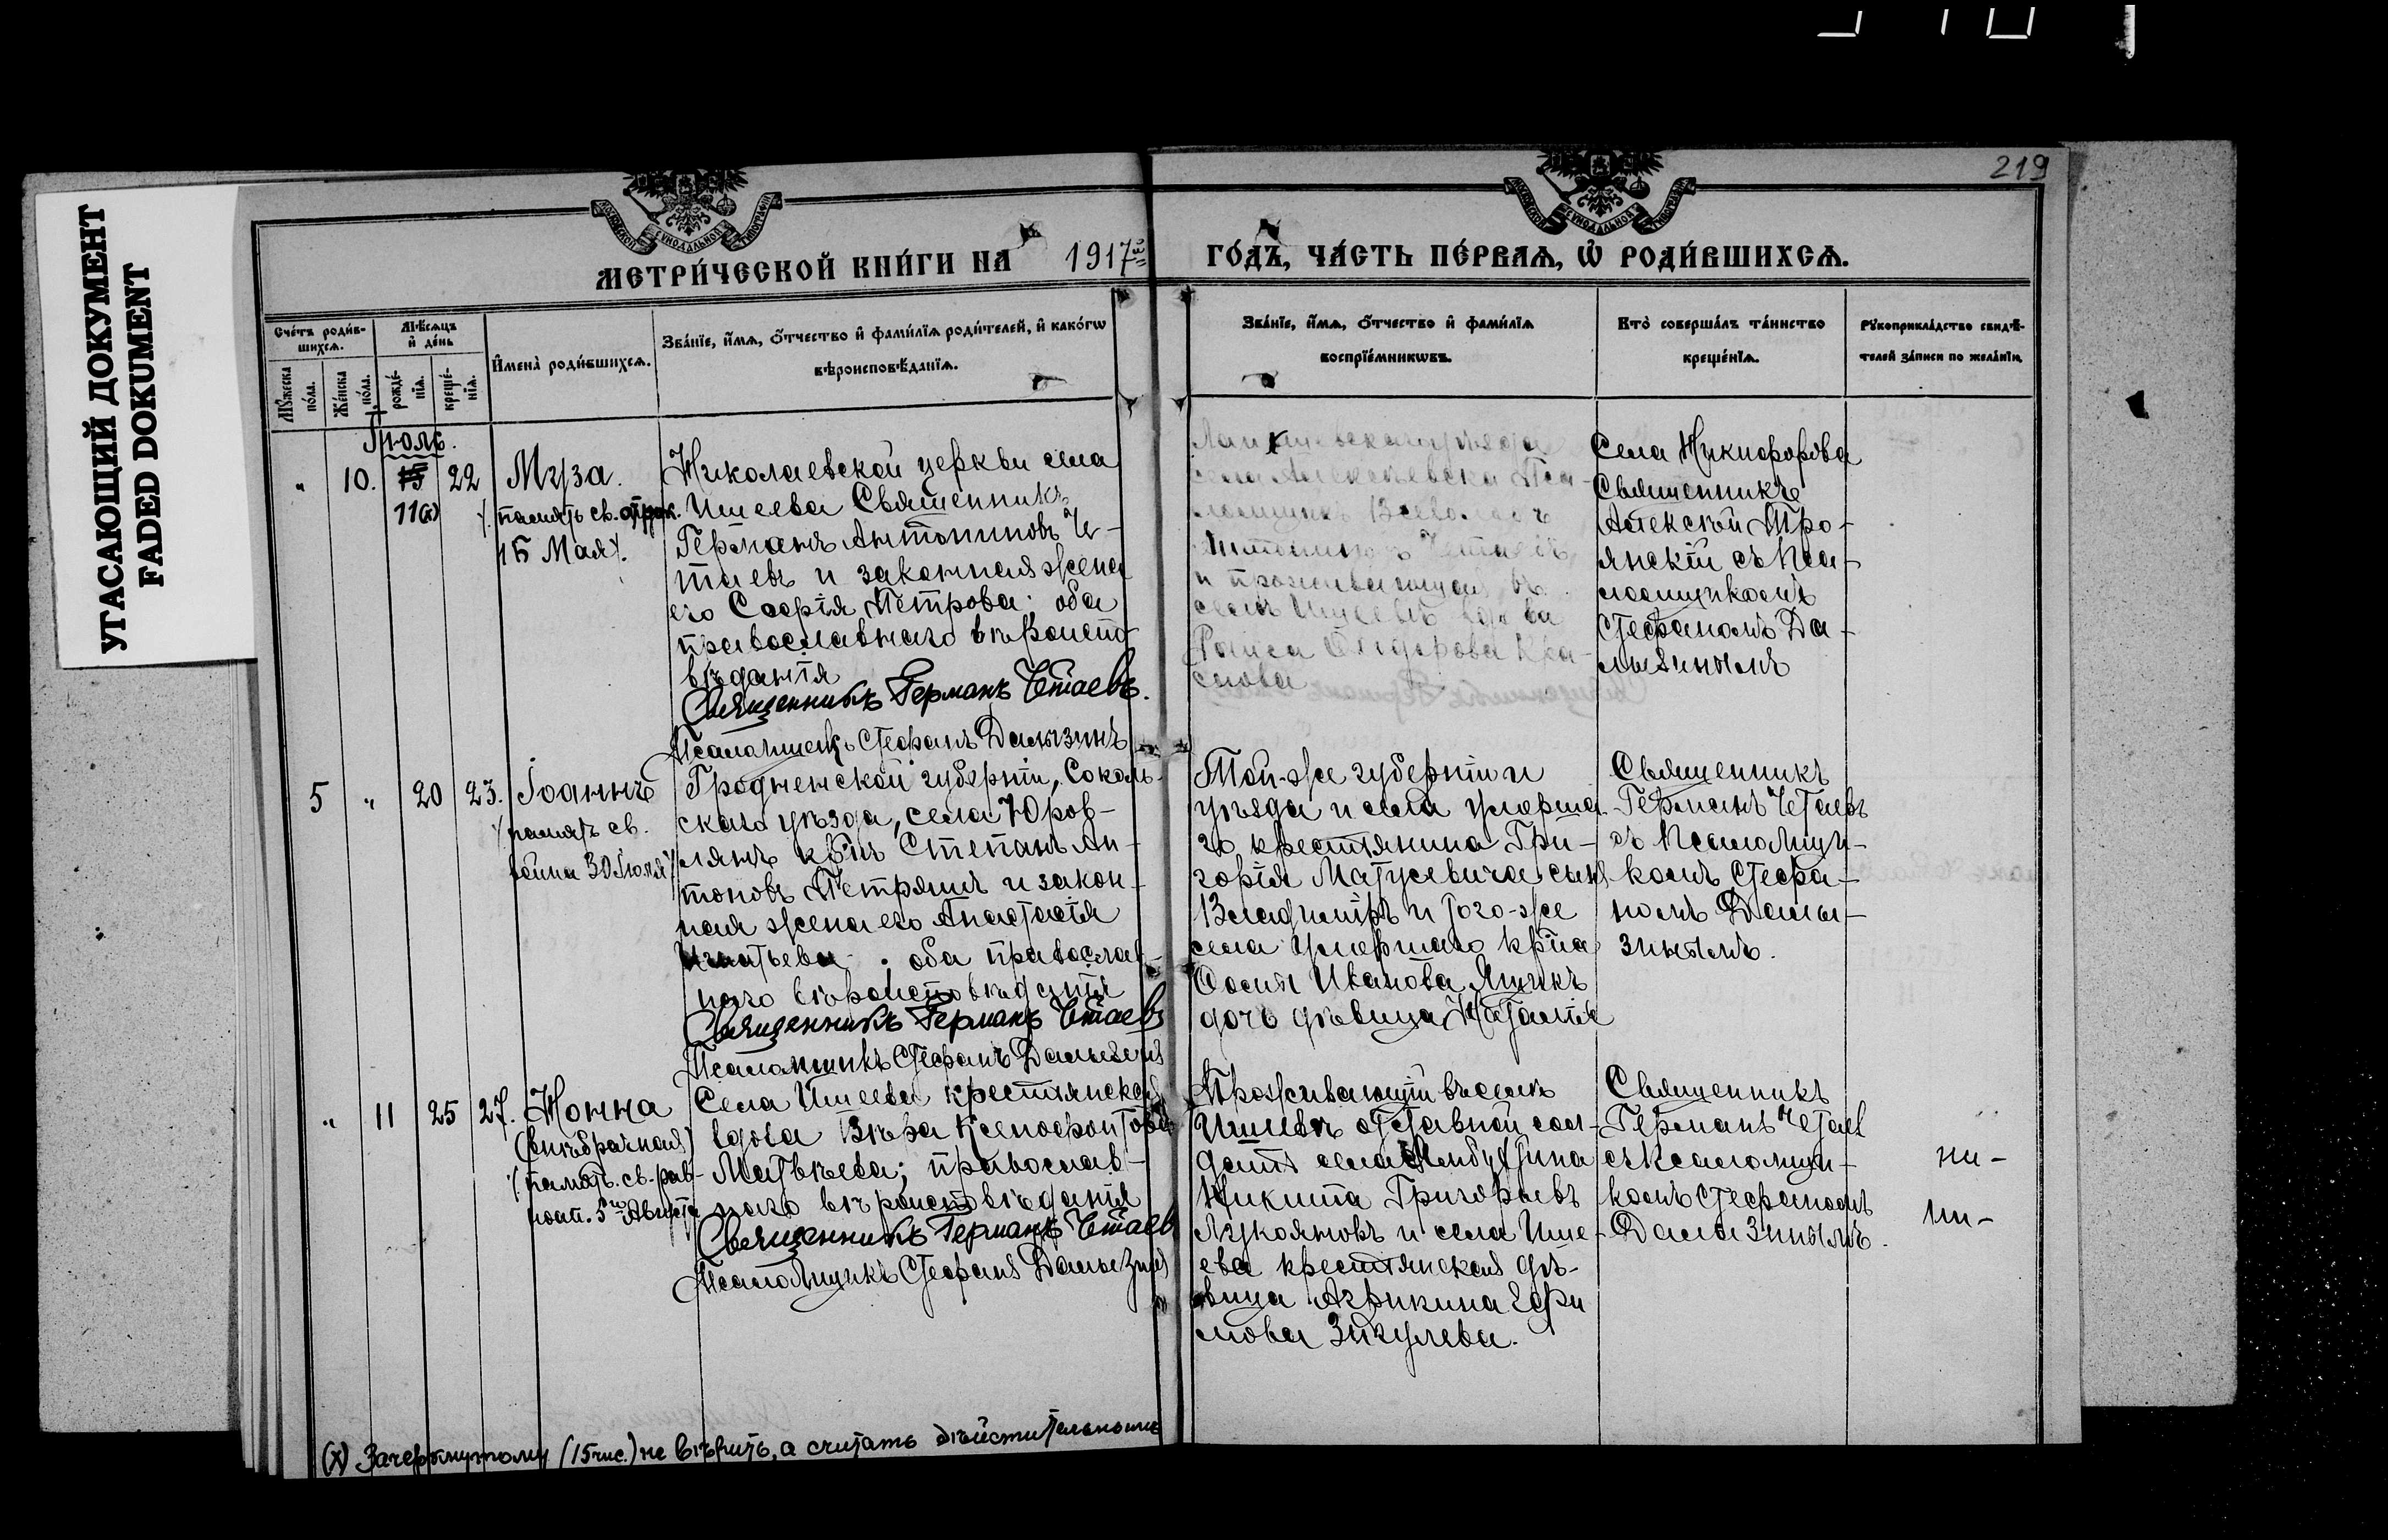 219
УГАСАЮЩИЙ ДОКУМЕНТ
FADED DOKUMENT
МЕТРИ́ЧЕСКОЙ КНИ́ГИ НА 1917й
ГО́ДЪ, ЧА́СТЬ ПЕ́РВАѦ, Ѡ҆ РОДИ́ВШИХСѦ.
Сче́тъ роди́в-
шихсѧ.
Мѣ́сѧцъ
и҆ де́нь
И҆мена̀ роди́вшихсѧ.
Зва́нїе, и҆́мѧ, ѻ҆́тчество и҆ фами́лїѧ роди́телей, и҆ како́гѡ
вѣроисповѣ́данїѧ.
Мꙋ́жеска
по́ла.
Же́нска
по́ла.
рожде́-
нїѧ.
креще́-
нїѧ.
Зва́нїе, и҆́мѧ, ѻ҆́тчество и҆ фами́лїѧ
воспрїе́мникѡвъ.
Кто̀ соверша́лъ та́инство
креще́нїѧ.
Рꙋкоприкла́дство свидѣ́-
телей за́писи по жела́нїю.
Іюль.
" 10. 15 22 Муза.
11(х)
память св.
15 Мая
Николаевской церкви села
Ишеева Священникъ
Германъ Антониновъ Че-
таевъ и законная жена
его Софія Петрова; оба
православнаго вѣроиспо-
вѣданія
Священникъ Германъ Четаевъ.
Псаломщикъ Стефанъ Далызинъ
уѣзда
села Пса-
ломщикъ Всеволодъ
Антониновъ Четаевъ
и проживающая въ
селѣ Ишеевѣ вдова
Раиса Крас-
нова
Села Никифорова
Священникъ
Алексѣй Тро-
янскій съ Пса-
ломщикомъ
Стефаномъ Да-
лызинымъ
5 " 20 23. Іоаннъ
память св.
воина 30 Іюля
Гродненской губерніи, Соколь-
скаго уѣзда, села Юров-
лянъ кр-нъ Степанъ Ан-
тоновъ Петряшъ и закон-
ная жена его Анастасія
Игнатьева; оба православ-
наго вѣроисповѣданія
Священникъ Германъ Четаевъ
Псаломщикъ Стефанъ Далызинъ
Той-же губерніи и
уѣзда и села умерша-
го крестьянина Гри-
горія Матусевича сынъ
Владиміръ и того-же
села умершаго кр-на
Осипа Иванова
дочь дѣвица Наталія
Священникъ
Германъ Четаевъ
съ Псаломщи-
комъ Стефа-
номъ Далы-
зинымъ.
" 11 25 27. Нонна
(внѣбрачная)
память св. рав-
ноап. 5го Августа
Села Ишеева крестьянская
вдова Вѣра Ксенофонтова
Матвѣева; православ-
наго вѣроисповѣданія
Священникъ Германъ Четаевъ
Псаломщикъ Стефанъ Далызинъ
Проживающій въ селѣ
Ишеевѣ отставной сол-
датъ села
Никита Григорьевъ
Лукояновъ и села Ише-
ева крестьянская дѣ-
вица Агрипина Ефи
мова Зикулева.
Священникъ
Германъ Четаев
съ Псаломщи-
комъ Стефаномъ
Далызинымъ.
(х) Зачеркнутому (15 чис.) не вѣрить, а считать дѣйствительнымъ